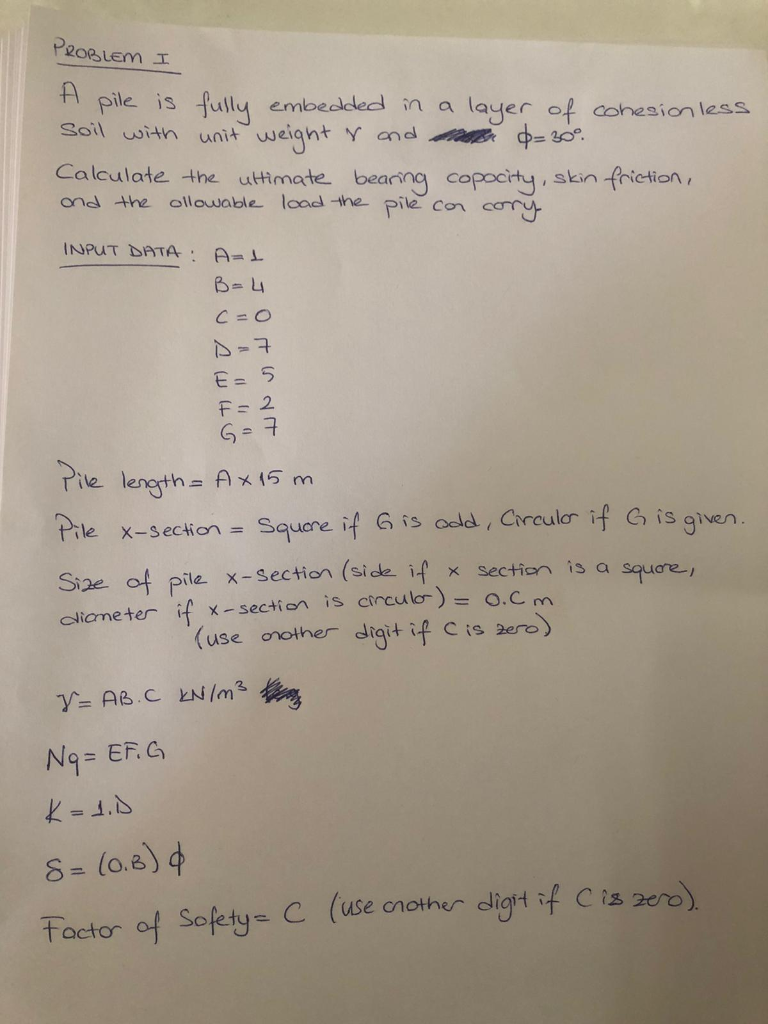 PROBLEM I
A pile is fully embedded in a layer of cohesionless
Soil with unit weight γ and ϕ=30°.
Calculate the ultimate bearing capacity, skin friction,
and the allowable load the pile can carry
INPUT DATA : A=1
B=4
C=0
D=7
E=5
F=2
G=7
Pile length= A x 15 m
Pile x-section = Square if G is odd, Circular if G is given.
Size of pile x-section (side if x section is a square,
diameter if x-section is circular) = 0.C m
(use another digit if C is zero)
γ= AB.C kN/m³
Nq= EF.G
K=1.D
δ= (0.B) ϕ
Factor of Safety= C (use another digit if C is zero).